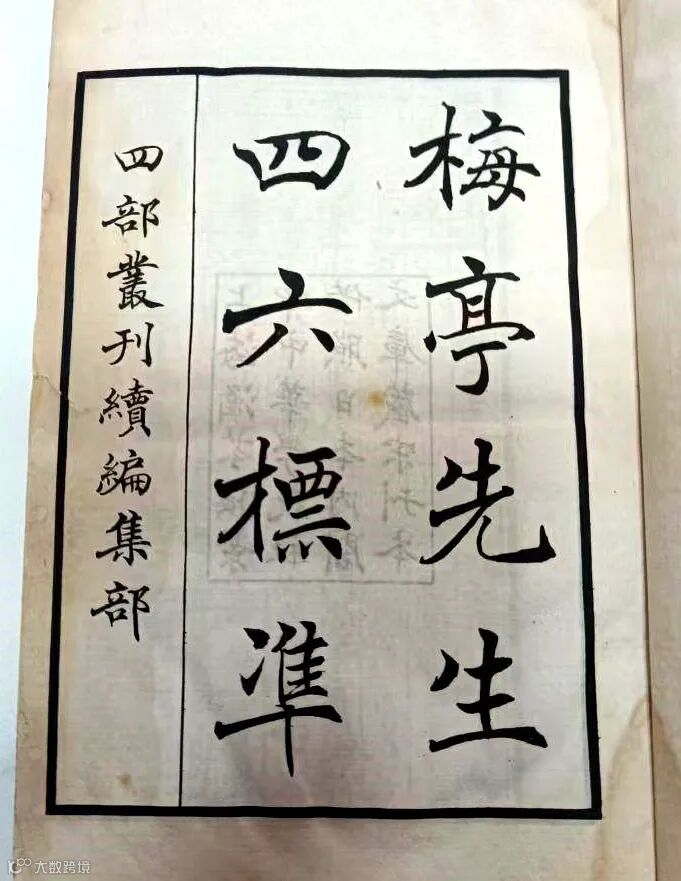 梅亭先生
四六標凖
四部叢刊續編集部
大数跨境